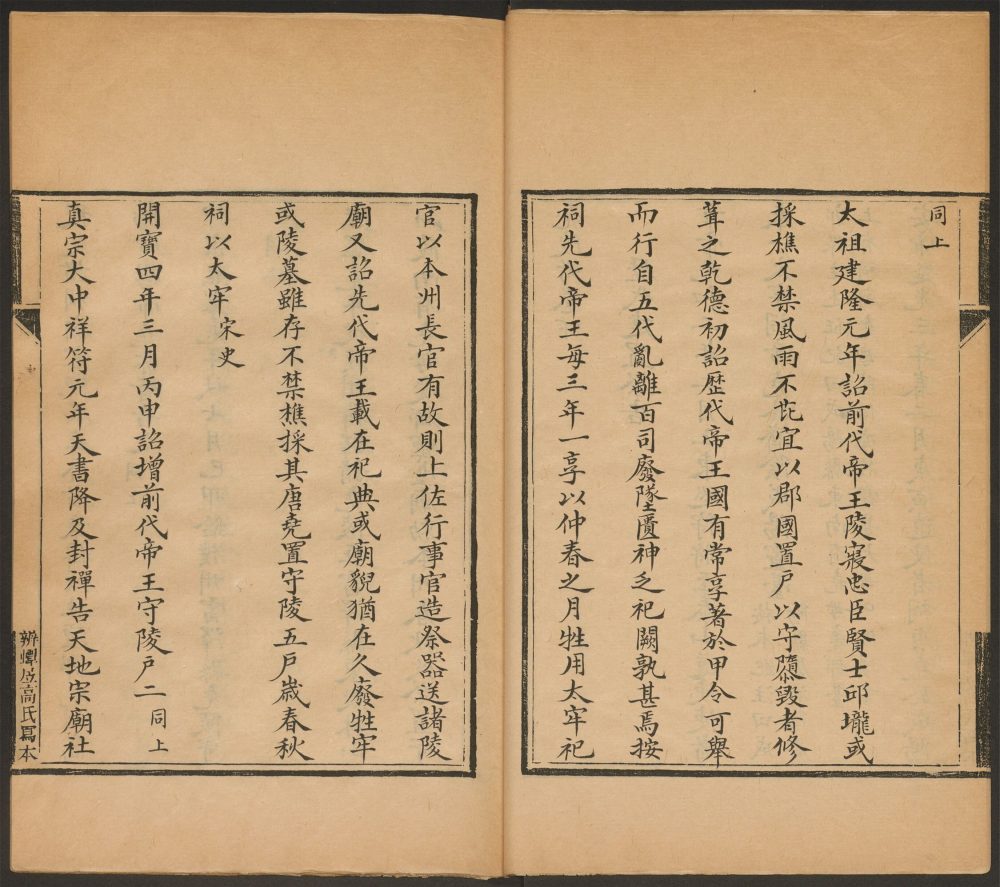 同上
太祖建隆元年詔前代帝王陵寢忠臣賢士邱壠或
採樵不禁風雨不芘宜以郡國置戶以守隳毀者修
葺之乾德初詔歷代帝王國有常享著於甲令可舉
而行自五代亂離百司廢墜匱神乏祀闕孰甚焉按
祠先代帝王每三年一享以仲春之月牲用太牢祀
官以本州長官有故則上佐行事官造祭器送諸陵
廟又詔先代帝王載在祀典或廟貎猶在久廢牲牢
或陵墓雖存不禁樵採其唐堯置守陵五戶嵗春秋
祠以太牢宋史
開寶四年三月丙申詔增前代帝王守陵戶二同上
真宗大中祥符元年天書降及封禪告天地宗廟社
辨蟫居高氏寫本